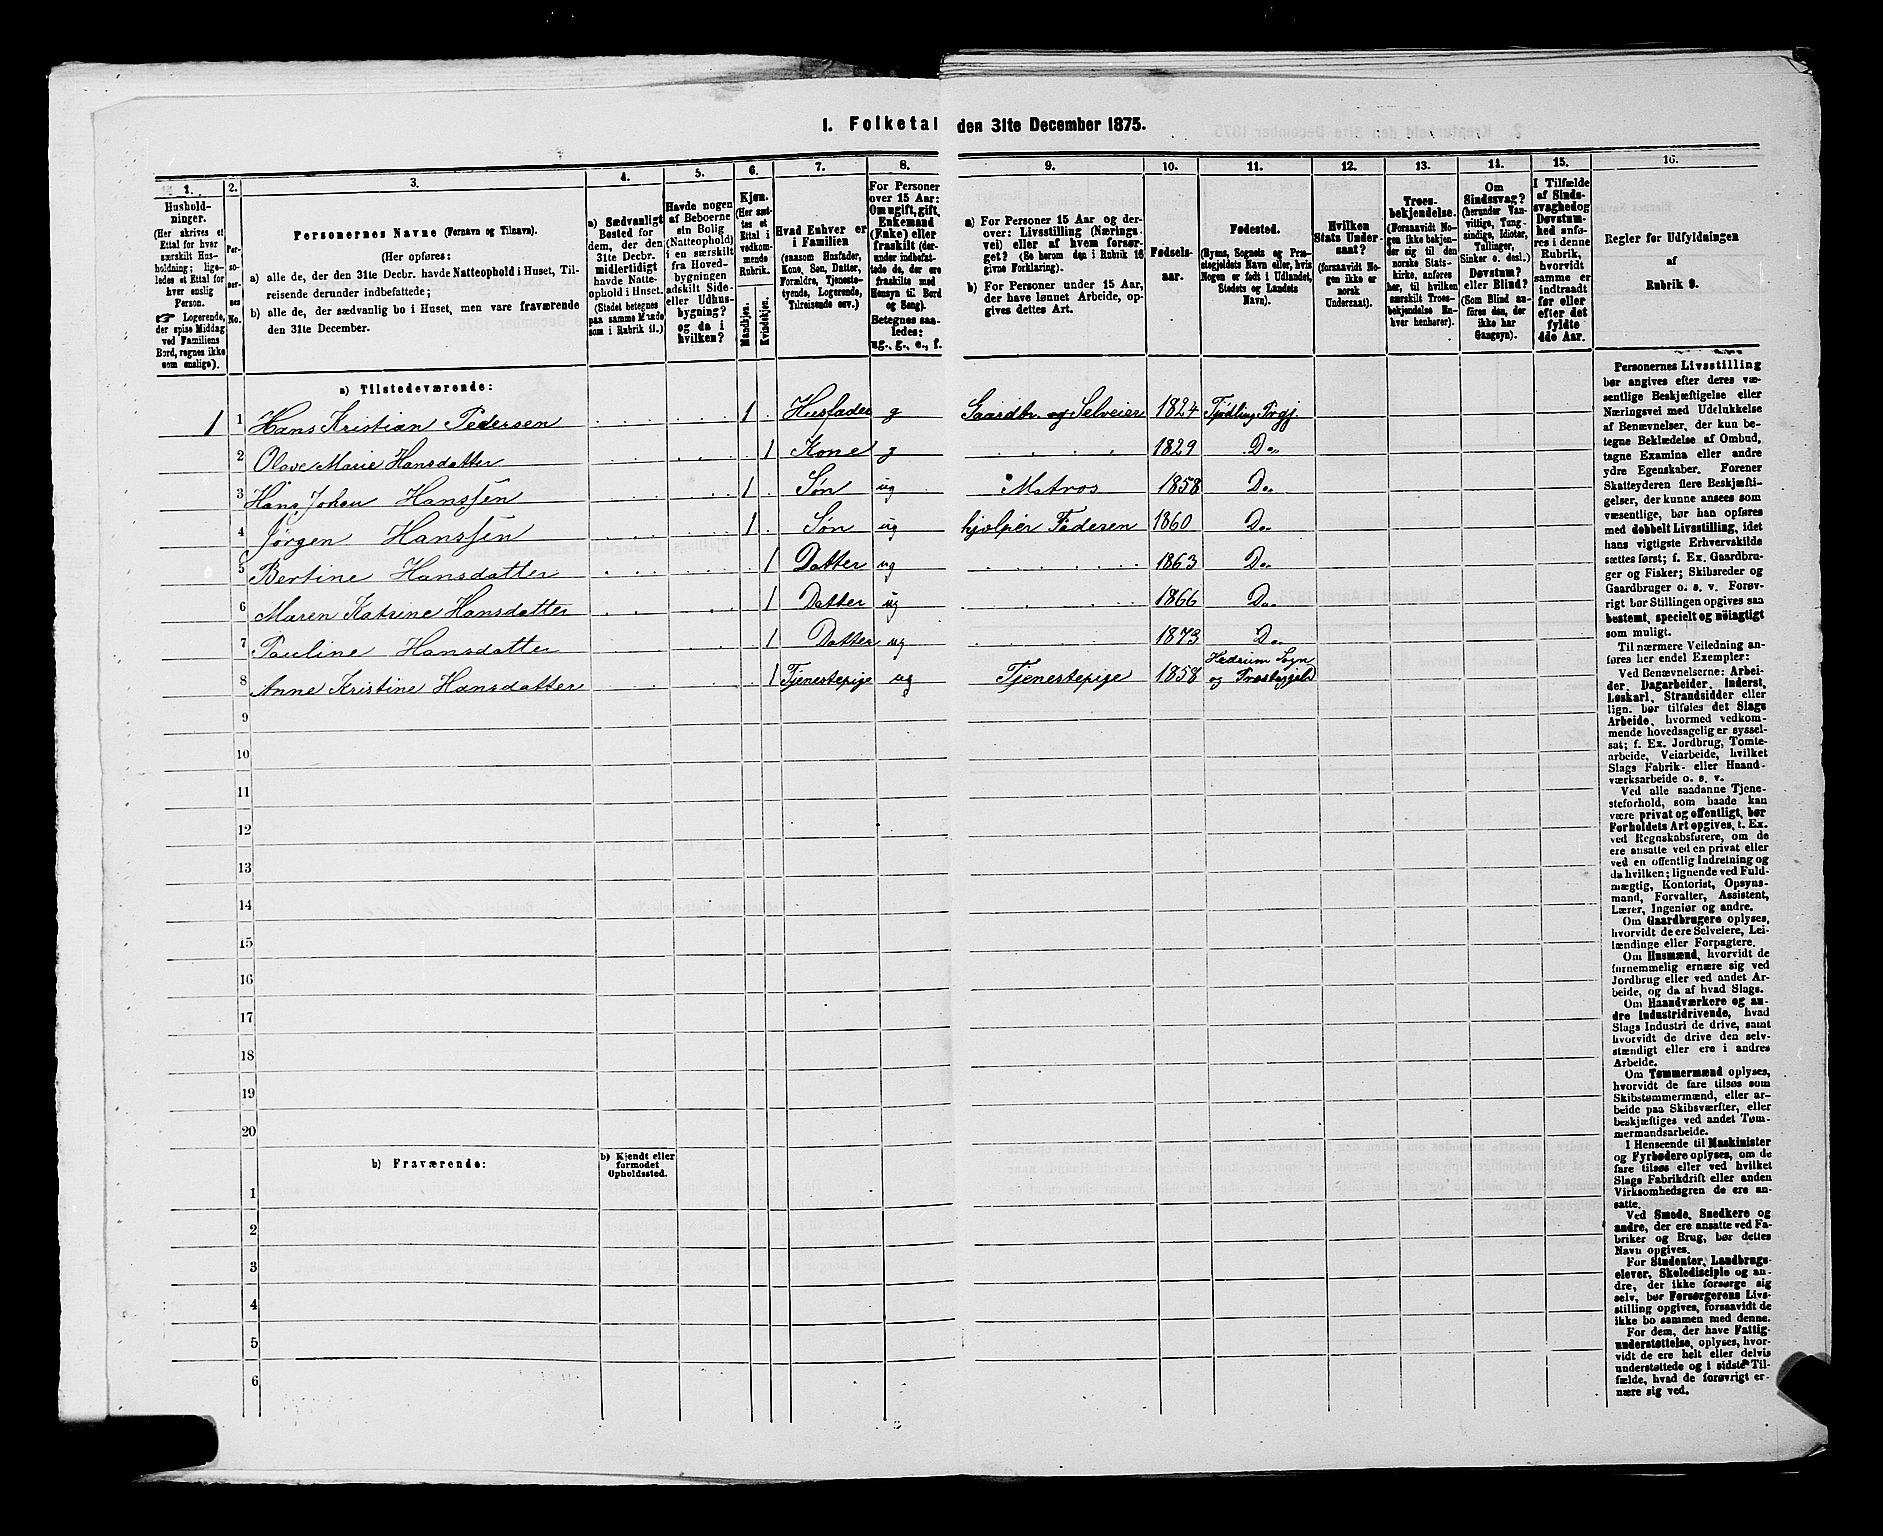 1. Folketal den 31te December 1875.
1. 2. 3. 4. 5. 6. 7. 8. 9. 10. 11. 12. 13. 14. 15. 16.
Hushold-
ninger.
(Her skrives et
Ettal for hver
særskilt Hus-
holdning; lige-
ledes et Ettal for
hver enslig
Person.
☞ Logerende,
der spise Middag
ved Familiens
Bord, regnes ikke
som enslige).
Per-
so-
ner-
nes
No.
Personernes Navne (Fornavn og Tilnavn).
(Her opføres:
a) alle de, der den 31te Decbr. havde Natteophold i Huset, Til-
reisende derunder indbefattede;
b) alle de, der sædvanlig bo i Huset, men vare fraværende
den 31te December.
a) Sædvanligt
Bosted for
dem, der den
31te Decbr.
midlertidigt
havde Natte-
ophold i Huset.
(Stedet betegnes
paa samme Maade
som i Rubrik 11.)
Havde nogen
af Beboerne
sin Bolig
(Natteophold)
i en særskilt
fra Hoved-
bygningen
adskilt Side-
eller Udhus-
bygning?
og da i
hvilken?
Kjøn.
(Her sæt-
tes et
Ettal i
vedkom-
mende
Rubrik.
Mandkjøn.
Kvindekjøn.
Hvad Enhver er
i Familien
(saasom Husfader,
Kone, Søn, Datter,
Forældre, Tjeneste-
tyende, Logerende,
Tilreisende osv.)
For Personer
over 15 Aar:
Om ugift, gift,
Enkemand
(Enke) eller
fraskilt (der-
under indbefat-
tede de, der ere
fraskilte med
Hensyn til Bord
og Seng).
Betegnes saa-
ledes:
ug., g., e., f.
a) For Personer 15 Aar og der-
over: Livsstilling (Nærings-
vei) eller af hvem forsør-
get? (Se herom den i Rubrik 16
givne Forklaring).
b) For Personer under 15 Aar,
der have lønnet Arbeide, op-
gives dettes Art.
Fødsels-
aar.
Fødested.
(Byens, Sognets og Præ-
stegjeldets Navn eller, hvis
Nogen er født i Udlandet,
Stedets og Landets
Navn).
Hvilken
Stats Under-
saat?
(forsaavidt No-
gen ikke er
norsk
Undersaat).
Troes-
bekjendelse.
(Forsaavidt No-
gen ikke bekjen-
der sig til den
norske Stats-
kirke, anføres
her, til hvilken
særskilt Troes-
bekjendelse En-
hver henhører).
Om
Sindssvag?
(herunder Van-
vittige, Tung-
sindige, Idioter,
Tullinger,
Sinker o. desl.)
Døvstum?
eller Blind?
(Som Blind an-
føres den, der
ikke har
Gangsyn).
I Tilfælde
af Sinds-
svaghed og
Døvstum-
hed anfø-
res i denne
Rubrik,
hvorvidt
samme er
indtraadt
før eller
efter det
fyldte
4de Aar.
Regler for Udfyldningen
af
Rubrik 9.
a) Tilstedeværende:
1 1 Hans Kristian Pedersen 1 Husfader g Gaardbr. og Selveier 1824 Tjødling Prgj.
2 Olave Marie Hansdatter 1 Kone g 1829 Do.
3 Hans Johan Hanssen 1 Søn ug Matros 1858 Do.
4 Jørgen Hanssen 1 Søn ug hjelper Faderen 1860 Do.
5 Bertine Hansdatter 1 Datter ug 1863 Do.
6 Maren Katrine Hansdatter 1 Datter ug 1866 Do.
7 Pauline Hansdatter 1 Datter ug 1873 Do.
8 Anne Kristine Hansdatter 1 Tjenestepige ug Tjenestepige 1858 Hedrum Sogn
og Præstegjeld
9
10
11
12
13
14
15
16
17
18
19
20
b) Fraværende:
b) Kjendt eller
formodet
Opholdssted.
1
2
3
4
5
6
Personernes Livsstilling
bør angives efter deres væ-
sentlige Beskjæftigelse eller
Næringsvei med Udelukkelse
af Benævnelser, der kun be-
tegne Beklædelse af Ombud,
tagne Examina eller andre
ydre Egenskaber. Forener
Skatteyderen flere Beskjæfti-
gelser, der kunne ansees som
væsentlige, bør han opføres
med dobbelt Livsstilling, idet
hans vigtigste Erhvervskilde
sættes først; f. Ex. Gaardbru-
ger og Fisker; Skibsreder og
Gaardbruger o. s. v. Forøv-
rigt bør Stillingen opgives saa
bestemt, specielt og nöiagtigt
som muligt.
Til nærmere Veiledning an-
føres her endel Exempler:
Ved Benævnelserne: Arbei-
der, Dagarbeider, Inderst,
Løskarl, Strandsidder eller
lign. bør tilføies det Slags
Arbeide, hvormed vedkom-
mende hovedsagelig er syssel-
sat; f. Ex. Jordbrug, Tomte-
arbeide, Veiarbeide, hvilket
Slags Fabrik- eller Haand-
værksarbeide o. s. v.
Ved alle saadanne Tjene-
steforhold, som baade kan
være privat og offentligt, bør
Forholdets Art opgives, t. Ex.
ved Regnskabsførere, om de
ere ansatte ved en privat eller
ved en offentlig Indretning og
da hvilken; lignende ved Fuld-
mægtig, Kontorist, Opsyns-
mand, Forvalter, Assistent,
Lærer, Ingeniør og andre.
Om Gaardbrugere oplyses,
hvorvidt de ere Selveiere, Lei-
lændinge eller Forpagtere.
Om Husmænd, hvorvidt de
fornemmelig ernære sig ved
Jordbrug eller ved andet Ar-
beide, og da af hvad Slags.
Om Haandværkere og an-
dre Industridrivende, hvad
Slags Industri de drive, samt
hvorvidt de drive den selv-
stændigt eller ere i andres
Arbeide.
Om Tømmermænd oplyses,
hvorvidt de fare tilsøs som
Skibstømmermænd, eller ar-
beide paa Skibsværfter, eller
beskjæftiges ved andet Tøm-
mermandsarbeide.
I Henseende til Maskinister
og Fyrbødere oplyses, om de
fare tilsøs eller ved hvilket
Slags Fabrikdrift eller anden
Virksomhedsgren de ere an-
satte.
Ved Smede, Snedkere og
andre, der ere ansatte ved Fa-
briker og Brug, bør dettes
Navn opgives.
For Studenter, Landbrugs-
elever, Skoledisciple og an-
dre, der ikke forsørge sig
selv, bør Forsørgerens Livs-
stilling opgives, forsaavidt de
ikke bo sammen med denne.
For dem, der have Fattig-
understøttelse, oplyses, hvor-
vidt de ere helt eller delvis
understøttede og i sidste Til-
fælde, hvad de forøvrigt er-
nære sig ved.